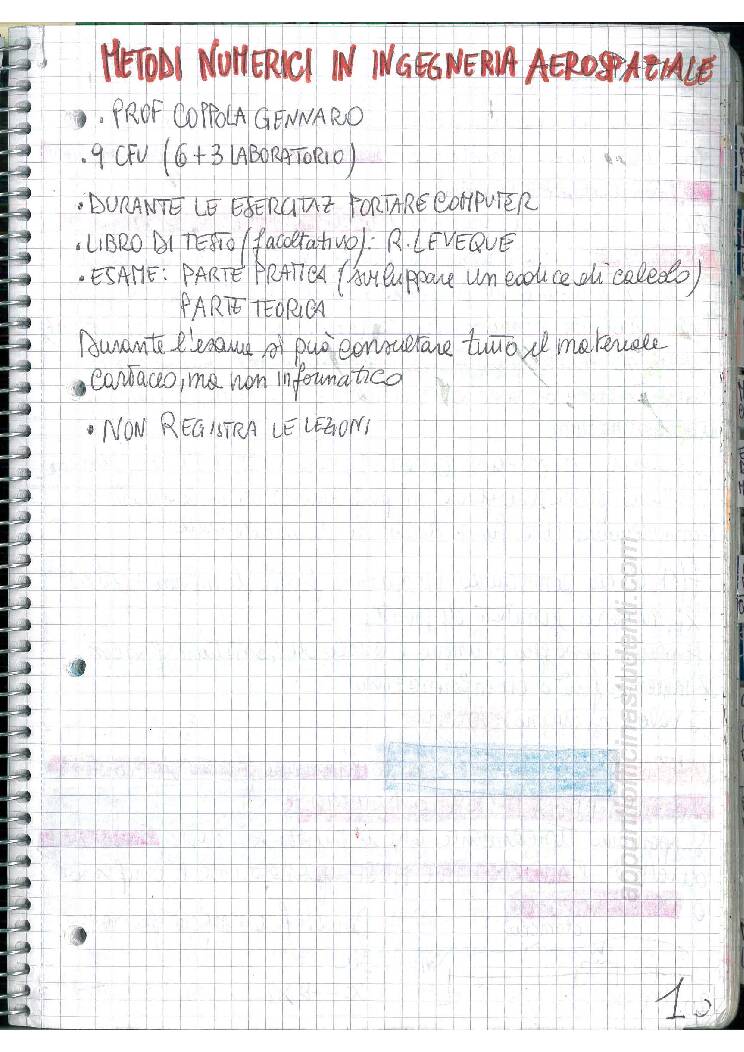 METODI NUMERICI IN INGEGNERIA AEROSPAZIALE
• PROF COPPOLA GENNARO
• 9 CFU (6+3 LABORATORIO)
• DURANTE LE ESERCITAZ PORTARE COMPUTER
• LIBRO DI TESTO (facoltativo): R. LEVEQUE
• ESAME: PARTE PRATICA (sviluppare un codice di calcolo)
PARTE TEORICA
Durante l'esame si può consultare tutto il materiale
cartaceo, ma non informatico
• NON REGISTRA LE LEZIONI
appuntiofficinastudenti.com
1